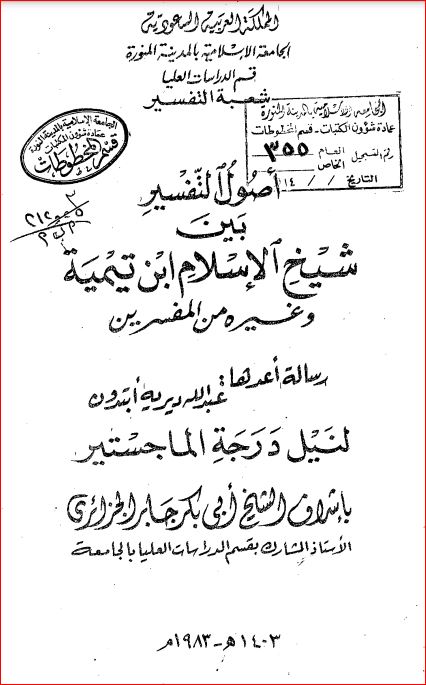 المملكة العربية السعودية
الجامعة الإسلامية بالمدينة المنورة
قسم الدراسات العليا
شعبة التفسير
الجامعة الإسلامية بالمدينة المنورة
عمادة شؤون المكتبات - قسم المخطوطات
رقم التسجيل العام
الخاص
٣٥٥
التاريخ / / ١٤
الجامعة الإسلامية بالمدينة المنورة
عمادة شؤون المكتبات
قسم المخطوطات
أصول التفسير
بين
شيخ الإسلام ابن تيمية
وغيره من المفسرين
رسالة أعدها: عبدالله ديريه أبتدون
لنيل درجة الماجستير
بإشراف الشيخ أبي بكر جابر الجزائري
الأستاذ المشارك بقسم الدراسات العليا بالجامعة
١٤٠٣هـ - ١٩٨٣م